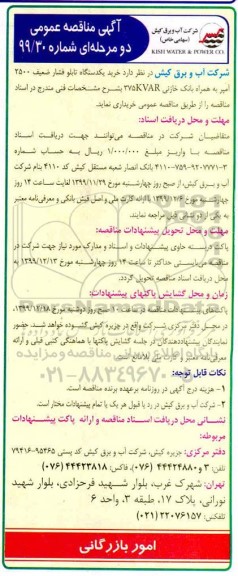 شرکت آب و برق کیش
(سهامی خاص)
KISH WATER & POWER CO.
آگهی مناقصه عمومی
دو مرحله‌ای شماره ۹۹/۳۰
شرکت آب و برق کیش در نظر دارد خرید یکدستگاه تابلو فشار ضعیف ۲۵۰۰
آمپر به همراه بانک خازنی ۳۷۵KVAR بشرح مشخصات فنی مندرج در اسناد
مناقصه را از طریق مناقصه عمومی خریداری نماید.
مهلت و محل دریافت اسناد:
متقاضیان شرکت در مناقصه می‌توانند جهت دریافت اسناد
مناقصه با واریز مبلغ ۱/۰۰۰/۰۰۰ ریال به حساب شماره
۴۱۱۰-۷۵۹-۹۲۰۷۷۷۱-۳ بانک انصار شعبه مستقل کیش کد ۴۱۱۰ بنام شرکت
آب و برق کیش، از صبح روز چهارشنبه مورخ ۱۳۹۹/۱۱/۲۹ لغایت ساعت ۱۴ روز
چهارشنبه مورخ با ارائه کارت ملی و اصل فیش بانکی و معرفی‌نامه معتبر
به یکی از نشانی ذیل مراجعه نمایند.
مهلت و محل تحویل پیشنهادات مناقصه:
پاکت دربسته حاوی پیشنهادات و اسناد و مدارک مورد نیاز جهت شرکت در
مناقصه می‌بایستی حداکثر تا ساعت ۱۴ روز چهارشنبه مورخ ۱۳۹۹/۱۲/۱۳ به
محل دریافت اسناد مناقصه تحویل گردد.
زمان و محل گشایش پاکتهای پیشنهادات:
پاکت‌های صبح روز دوشنبه مورخ ۱۳۹۹/۱۲/۱۸
در محل دفتر مرکزی شرکت واقع در جزیره کیش گشوده خواهد شد. حضور
نمایندگان پیشنهاددهندگان در جلسه گشایش پاکتها با هماهنگی کتبی قبلی و ارائه
معرفی‌نامه
نکات قابل توجه:
۱- هزینه درج آگهی در روزنامه برعهده برنده مناقصه است.
۲- شرکت آب و برق کیش در رد یا قبول هر یک یا تمام پیشنهادات مختار است.
نشانی محل دریافت اسناد مناقصه و ارائه پاکت پیشنهادات
مربوطه:
دفتر مرکزی: جزیره کیش، شرکت آب و برق کیش کد پستی ۹۵۴۶۵-۷۹۴۱۶
تلفن: ۳ و ۴۴۴۲۴۸۸۰ (۰۷۶)، فاکس: ۴۴۴۲۳۸۱۸ (۰۷۶)
تهران: شهرک غرب، بلوار شهید فرحزادی، بلوار شهید
نورانی، پلاک ۱۷، طبقه ۳، واحد ۶
تلفکس: ۲۲۰۷۶۱۵۷ (۰۲۱)
امور بازرگانی
۰۲۱-۸۸۳۴۹۶۷۰